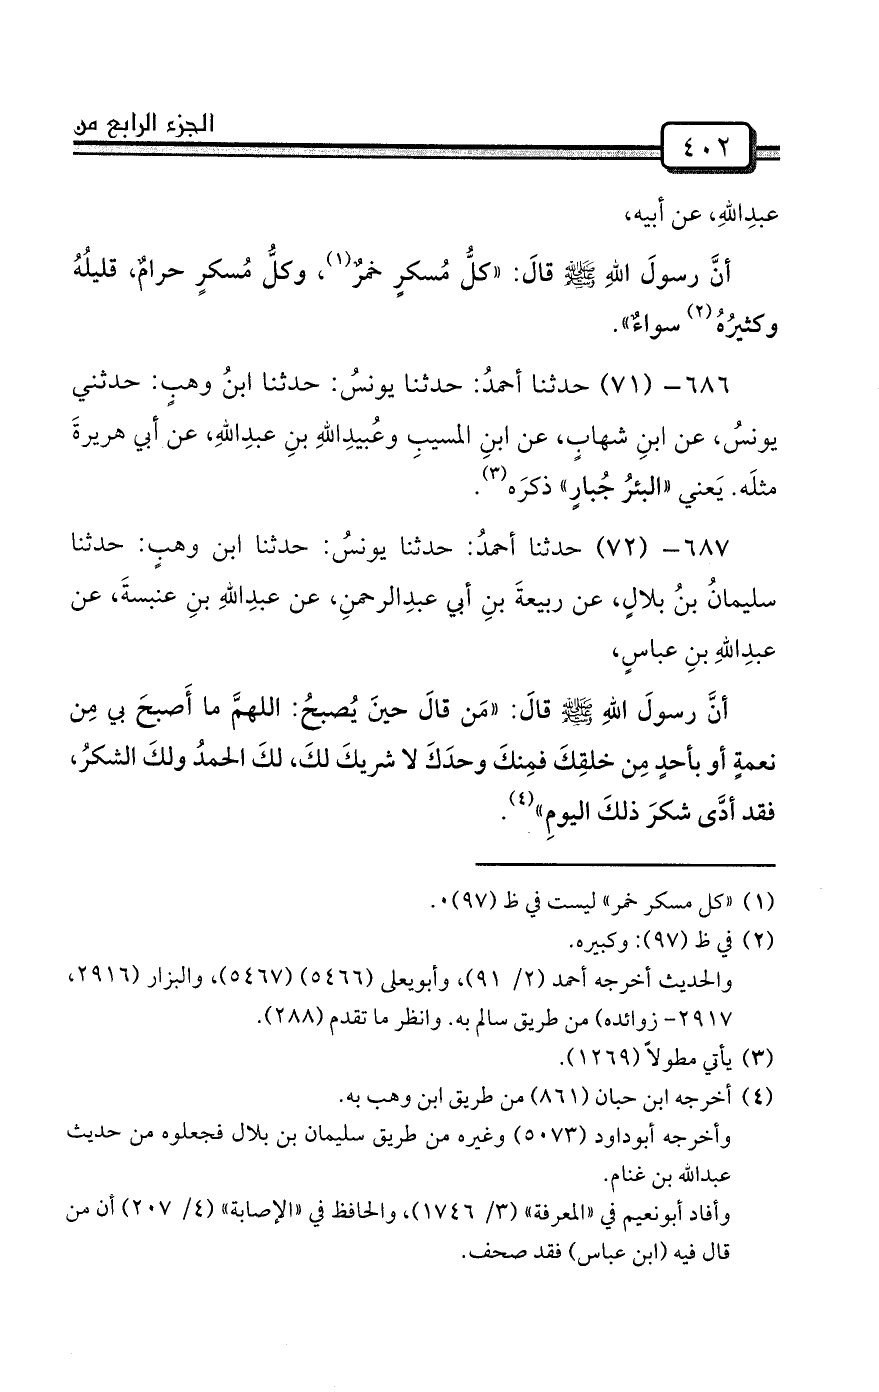 الجزء الرابع من
٤٠٢
عبدِاللهِ، عن أبيه،
أنَّ رسولَ اللهِ ﷺ قالَ: «كلُّ مُسكرٍ خمرٌ(١)، وكلُّ مُسكرٍ حرامٌ، قليلُهُ
وكثيرُهُ(٢) سواءٌ».
٦٨٦- (٧١) حدثنا أحمدُ: حدثنا يونسُ: حدثنا ابنُ وهبٍ: حدثني
يونسُ، عن ابنِ شهابٍ، عن ابنِ المسيبِ وعُبيدِاللهِ بنِ عبدِاللهِ، عن أبي هريرةَ
مثلَه. يَعني «البئرُ جُبارٍ» ذكرَه(٣).
٦٨٧- (٧٢) حدثنا أحمدُ: حدثنا يونسُ: حدثنا ابن وهبٍ: حدثنا
سليمانُ بنُ بلالٍ، عن ربيعةَ بنِ أبي عبدِالرحمنِ، عن عبدِاللهِ بنِ عنبسةَ، عن
عبدِاللهِ بنِ عباسٍ،
أنَّ رسولَ اللهِ ﷺ قالَ: «مَن قالَ حينَ يُصبحُ: اللهمَّ ما أَصبحَ بي مِن
نعمةٍ أو بأحدٍ مِن خلقِكَ فمِنكَ وحدَكَ لا شريكَ لكَ، لكَ الحمدُ ولكَ الشكرُ،
فقد أدَّى شكرَ ذلكَ اليومِ»(٤).
(١) «كل مسكر خمر» ليست في ظ (٩٧)٠.
(٢) في ظ (٩٧): وكبيره.
والحديث أخرجه أحمد (٢/ ٩١)، وأبويعلى (٥٤٦٦) (٥٤٦٧)، والبزار (٢٩١٦،
٢٩١٧- زوائده) من طريق سالم به. وانظر ما تقدم (٢٨٨).
(٣) يأتي مطولاً (١٢٦٩).
(٤) أخرجه ابن حبان (٨٦١) من طريق ابن وهب به.
وأخرجه أبوداود (٥٠٧٣) وغيره من طريق سليمان بن بلال فجعلوه من حديث
عبدالله بن غنام.
وأفاد أبونعيم في «المعرفة» (٣/ ١٧٤٦)، والحافظ في «الإصابة» (٤/ ٢٠٧) أن من
قال فيه (ابن عباس) فقد صحف.